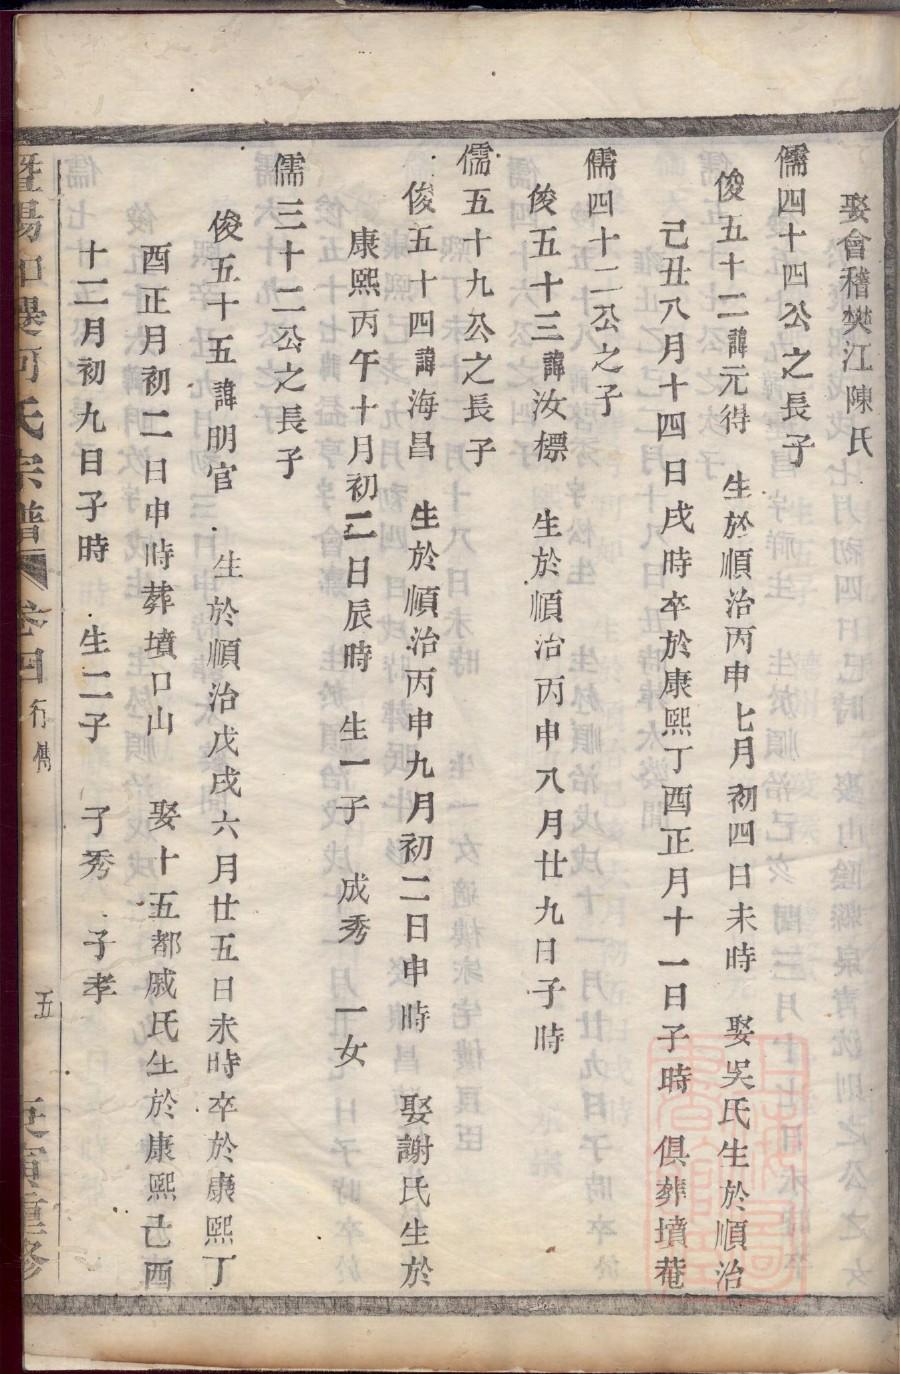 娶會稽樊江陳氏
儒四十四公之長子
俊五十二諱元得 生於順治丙申七月初四日未時 娶吳氏生於順治
己丑八月十四日戌時卒於康熙丁酉正月十一日子時 俱葬墳菴
儒四十二公之子
俊五十三諱汝標 生於順治丙申八月廿九日子時
儒五十九公之長子
俊五十四諱海昌 生於順治丙申九月初二日申時 娶謝氏生於
康熙丙午十月初二日辰時 生一子 成秀 一女
儒三十二公之長子
俊五十五諱明官 生於順治戊戌六月廿五日未時卒於康熙丁
酉正月初二日申時葬墳口山 娶十五都戚氏生於康熙己酉
十二月初九日子時 生二子 子秀 子孝
暨陽 河氏宗譜 卷四 行傳 五 寅重修